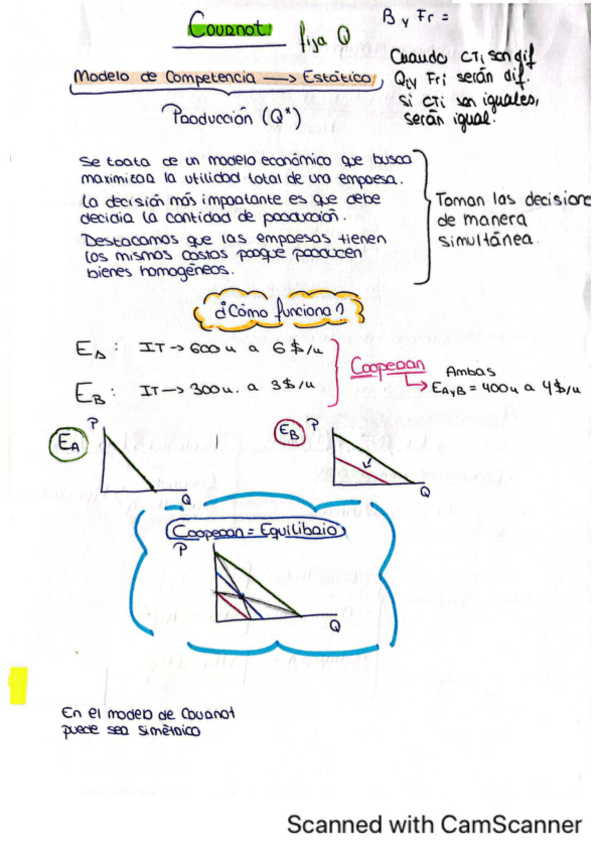 Cournot: fija Q
B y Fr =
Cuando CTi son dif
Qi y Fri serán dif.
si CTi son iguales,
serán igual.
Modelo de Competencia → Estático
Producción (Q*)
Se trata de un modelo económico que busca
maximizar la utilidad total de una empresa.
La decisión más importante es que debe
decidir la cantidad de producción.
Destacamos que las empresas tienen
los mismos costos porque producen
bienes homogéneos.
Toman las decisione
de manera
simultánea.
¿Cómo funciona?
EA: IT → 600 u a 6 $/u
EB: IT → 300 u. a 3 $/u
Cooperan
Ambas
EAyB = 400 u a 4 $/u
EA
P
Q
EB
P
Q
Cooperan = Equilibrio
P
Q
En el modelo de Cournot
puede ser simétrico
Scanned with CamScanner